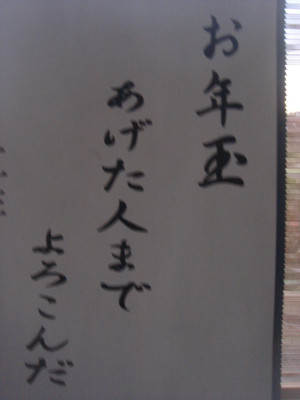 お年玉
あげた人まで
よろこんだ